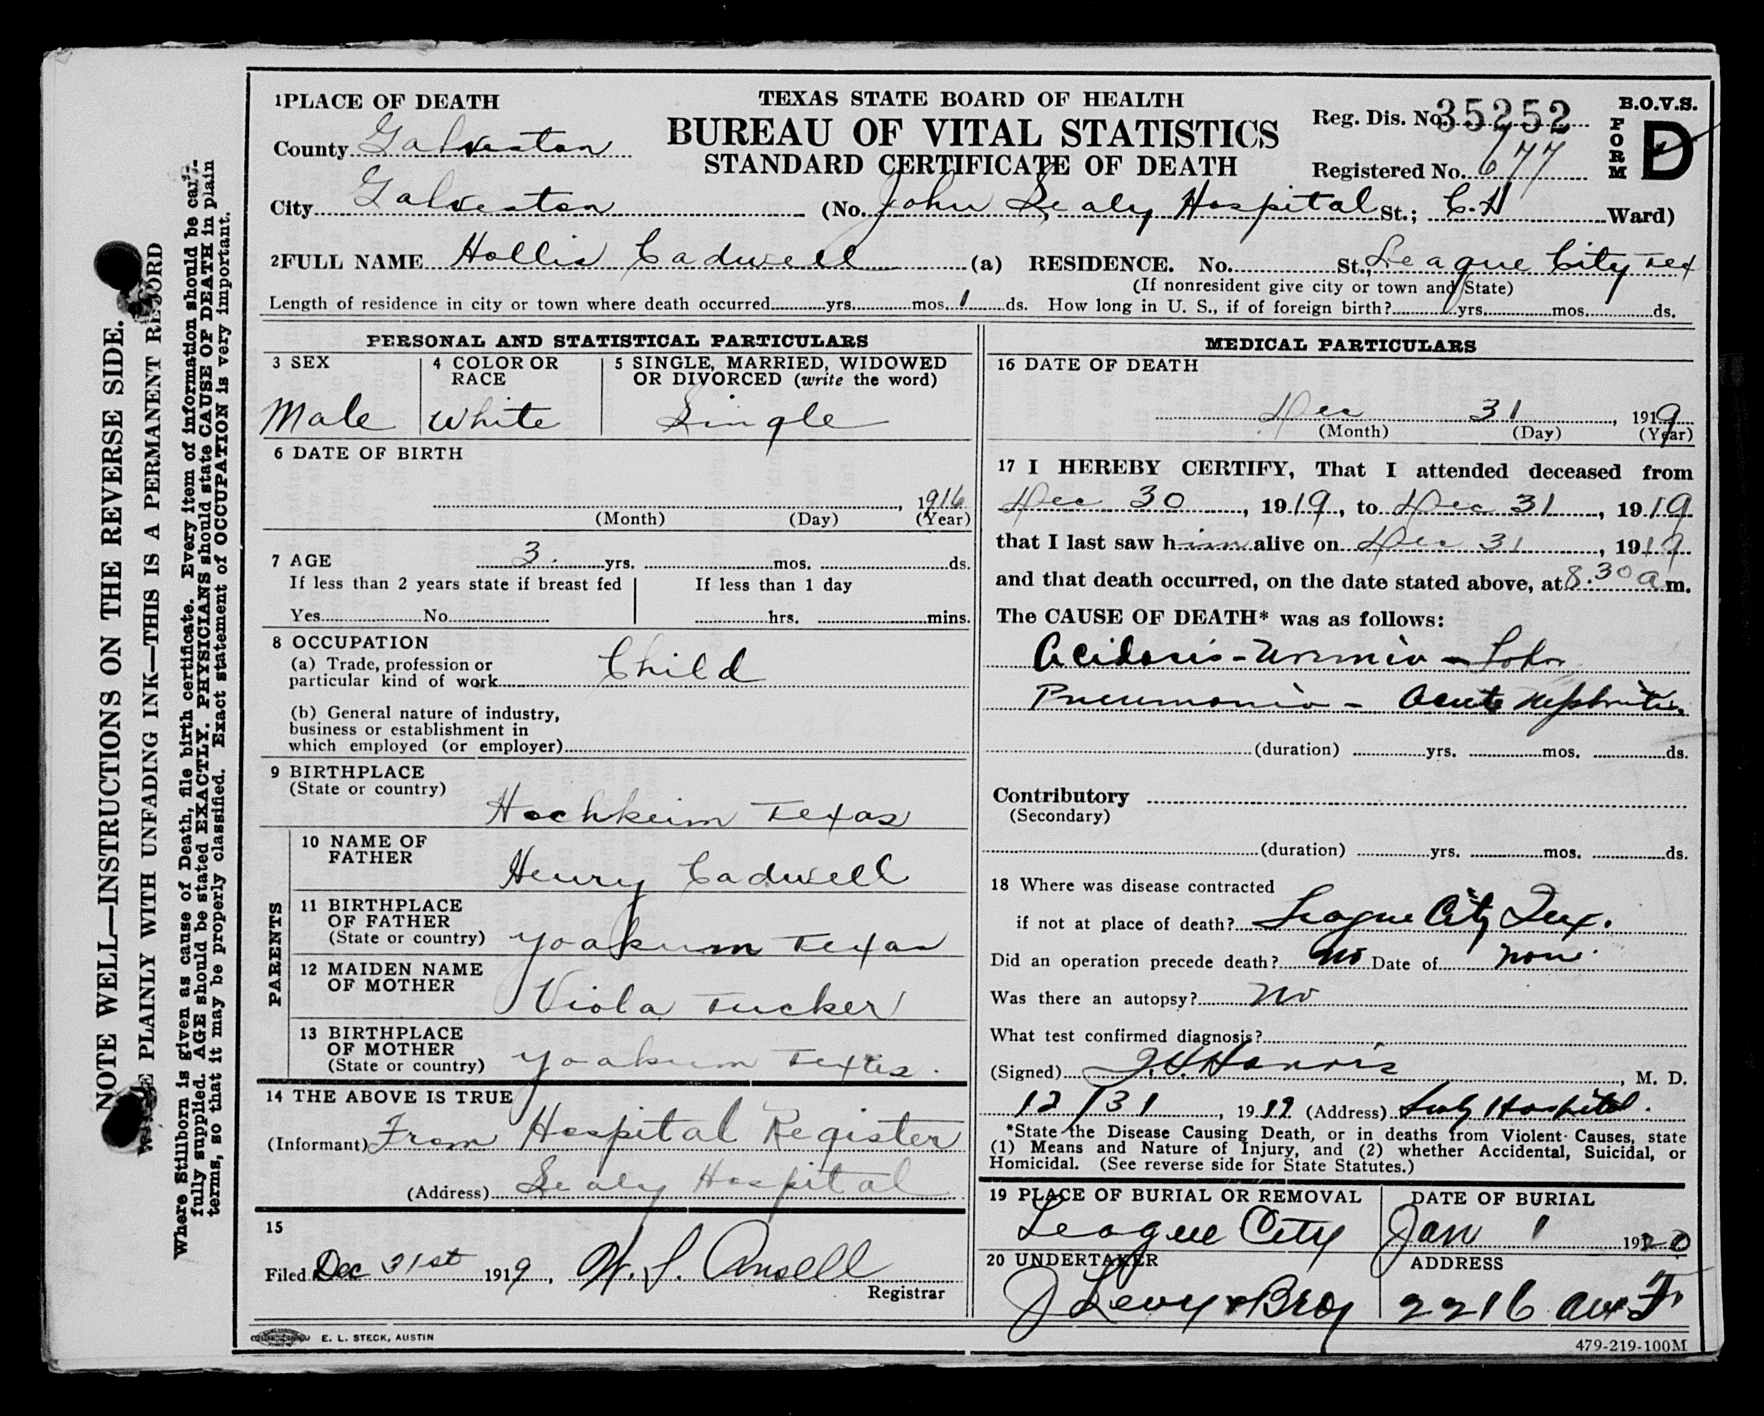 NOTE WELL—INSTRUCTIONS ON THE REVERSE SIDE.
PLAINLY WITH UNFADING INK—THIS IS A PERMANENT RECORD
Where Stillborn is given as cause of Death, file birth certificate. Every item of information should be care-
fully supplied. AGE should be stated EXACTLY. PHYSICIANS should state CAUSE OF DEATH in plain
terms, so that it may be properly classified. Exact statement of OCCUPATION is very important.
1PLACE OF DEATH
TEXAS STATE BOARD OF HEALTH
BUREAU OF VITAL STATISTICS
STANDARD CERTIFICATE OF DEATH
Reg. Dis. No. 35252
Registered No. 677
B.O.V.S.
FORM D
County Galveston
City Galveston (No. John Sealy Hospital St.; C.H Ward)
2FULL NAME Hollis Cadwell (a) RESIDENCE. No. St., League City Tex
(If nonresident give city or town and State)
Length of residence in city or town where death occurred yrs. mos. 1 ds. How long in U. S., if of foreign birth? yrs. mos. ds.
PERSONAL AND STATISTICAL PARTICULARS
3 SEX
Male
4 COLOR OR RACE
White
5 SINGLE, MARRIED, WIDOWED
OR DIVORCED (write the word)
Single
6 DATE OF BIRTH
, 1916
(Month) (Day) (Year)
7 AGE 3. yrs. mos. ds.
If less than 2 years state if breast fed If less than 1 day
Yes No hrs. mins.
8 OCCUPATION
(a) Trade, profession or
particular kind of work Child
(b) General nature of industry,
business or establishment in
which employed (or employer)
9 BIRTHPLACE
(State or country)
Hochheim Texas
PARENTS
10 NAME OF
FATHER
Henry Cadwell
11 BIRTHPLACE
OF FATHER
(State or country) Yoakum Texas
12 MAIDEN NAME
OF MOTHER
Viola Tucker
13 BIRTHPLACE
OF MOTHER
(State or country) Yoakum Texas.
14 THE ABOVE IS TRUE
(Informant) From Hospital Register
(Address) Sealy Hospital
15
Filed Dec 31st 1919, W. S. Ansell
Registrar
E. L. STECK, AUSTIN
MEDICAL PARTICULARS
16 DATE OF DEATH
Dec 31, 1919
(Month) (Day) (Year)
17 I HEREBY CERTIFY, That I attended deceased from
Dec 30, 1919, to Dec 31, 1919
that I last saw him alive on Dec 31, 1919
and that death occurred, on the date stated above, at 8.30 a m.
The CAUSE OF DEATH* was as follows:
Acidosis - Uremia - Lobar
Pneumonia - Acute Nephritis
(duration) yrs. mos. ds.
Contributory
(Secondary)
(duration) yrs. mos. ds.
18 Where was disease contracted
if not at place of death? League City Tex.
Did an operation precede death? No Date of none
Was there an autopsy? No
What test confirmed diagnosis?
(Signed) Harris, M. D.
12/31, 1919 (Address) Sealy Hospital.
*State the Disease Causing Death, or in deaths from Violent Causes, state
(1) Means and Nature of Injury, and (2) whether Accidental, Suicidal, or
Homicidal. (See reverse side for State Statutes.)
19 PLACE OF BURIAL OR REMOVAL
League City
DATE OF BURIAL
Jan 1 1920
20 UNDERTAKER
J Levy & Bro
ADDRESS
2216 Ave F
479-219-100M